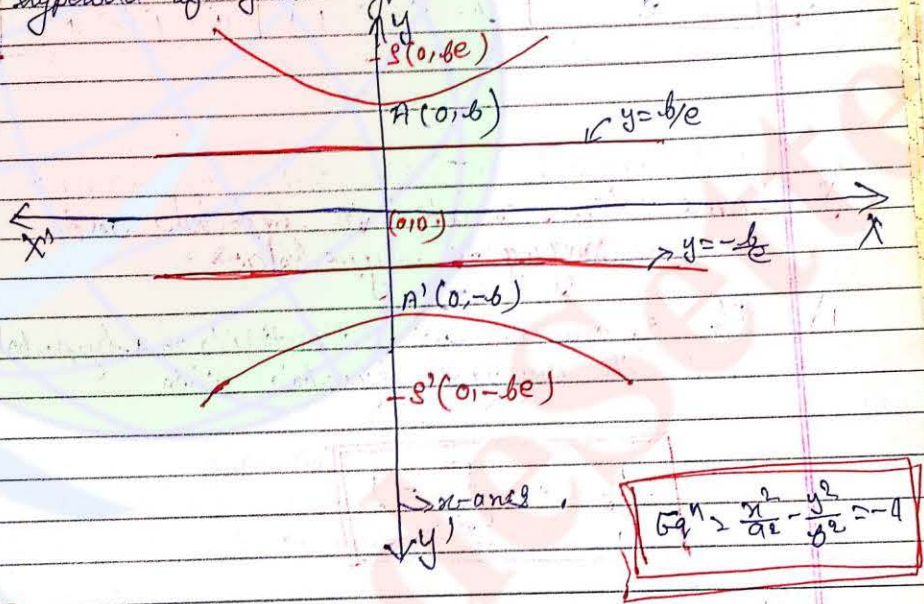 y
S(0,be)
A(0,b)
y=b/e
X'
(0,0)
X
y=-b/e
A'(0,-b)
S'(0,-be)
x-axis
y'
Eqⁿ > x²/a² - y²/b² = -1